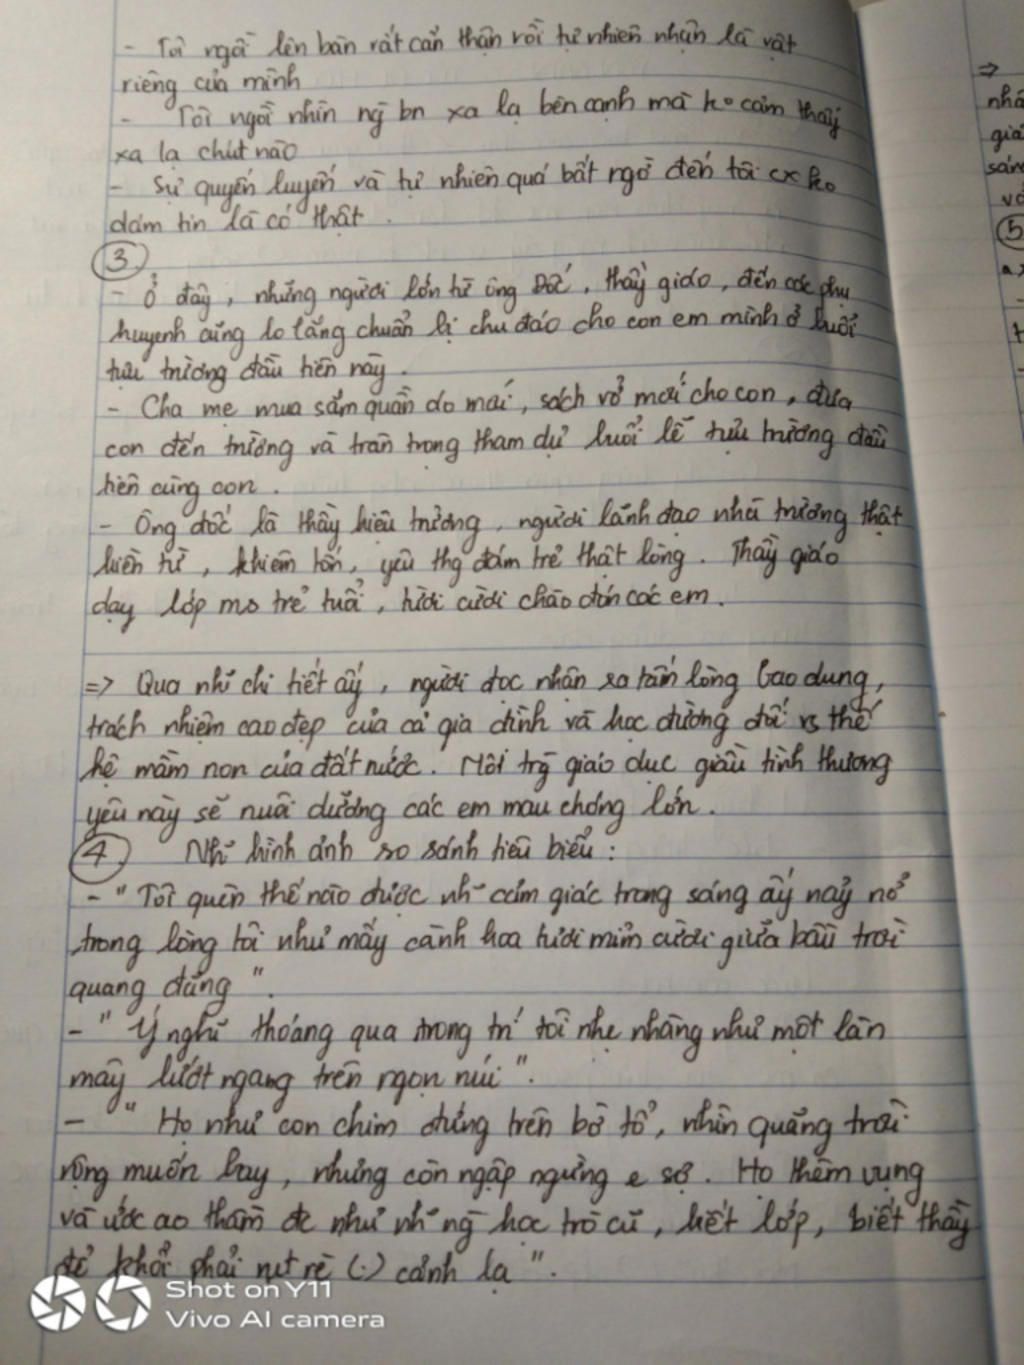 - Tôi ngồi lên bàn rất cẩn thận rồi tự nhiên nhận là vật
riêng của mình
- Tôi ngồi nhìn ng̃ bn xa lạ bên cạnh mà ko cảm thấy
xa lạ chút nào
- Sự quyến luyến và tự nhiên quá bất ngờ đến tôi cx ko
dám tin là có thật.
3
- Ở đây, những người lớn từ ông Đốc, thầy giáo, đến các phụ
huynh cũng lo lắng chuẩn bị chu đáo cho con em mình ở buổi
tựu trường đầu tiên này.
- Cha mẹ mua sắm quần áo mới, sách vở mới cho con, đưa
con đến trường và trân trọng tham dự buổi lễ tựu trường đầu
tiên cùng con.
- Ông đốc là thầy hiệu trưởng, người lãnh đạo nhà trường thật
hiền từ, khiêm tốn, yêu thg đám trẻ thật lòng. Thầy giáo
dạy lớp ms trẻ tuổi, tươi cười chào đón các em.
=> Qua nh~ chi tiết ấy, người đọc nhận ra tấm lòng bao dung,
trách nhiệm cao đẹp của cả gia đình và học đường đối vs thế
hệ mầm non của đất nước. Môi trg̀ giáo dục giàu tình thương
yêu này sẽ nuôi dưỡng các em mau chóng lớn.
4 Nh~ hình ảnh so sánh tiêu biểu:
- "Tôi quên thế nào được nh~ cảm giác trong sáng ấy nảy nở
trong lòng tôi như mấy cành hoa tươi mỉm cười giữa bầu trời
quang đãng".
- "Ý nghĩ thoáng qua trong trí tôi nhẹ nhàng như một làn
mây lướt ngang trên ngọn núi".
- "Họ như con chim đứng trên bờ tổ, nhìn quãng trời
rộng muốn bay, nhưng còn ngập ngừng e sợ. Họ thèm vụng
và ước ao thầm đc như những học trò cũ, biết lớp, biết thầy
để khỏi phải rụt rè (.) cảnh lạ".
=>
nhá
già
sán
và
5
Shot on Y11
Vivo AI camera